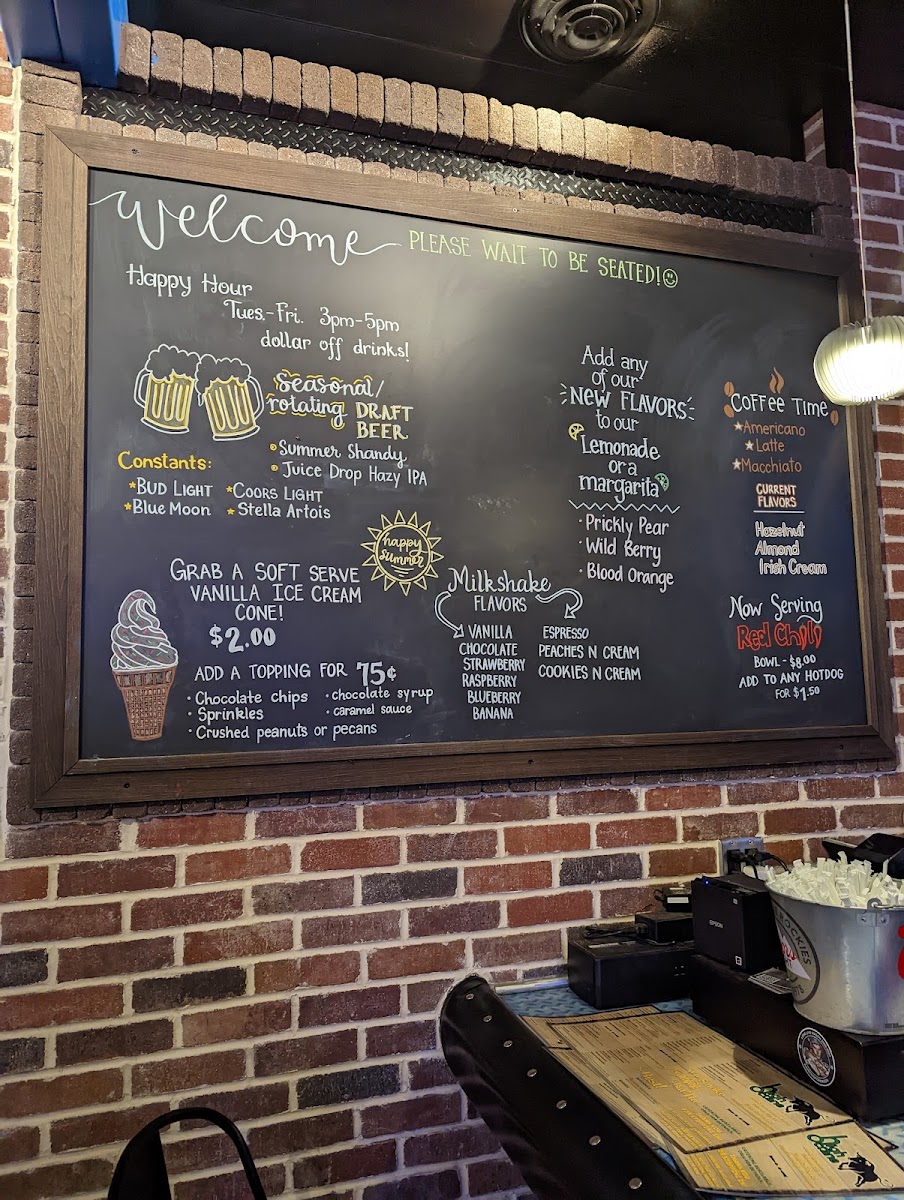 Welcome
PLEASE WAIT TO BE SEATED!
Happy Hour
Tues.-Fri. 3pm-5pm
dollar off drinks!
Seasonal/
rotating DRAFT
BEER
Summer Shandy
Juice Drop Hazy IPA
Constants:
*BUD LIGHT *COORS LIGHT
*Blue Moon *Stella Artois
happy
summer
GRAB A SOFT SERVE
VANILLA ICE CREAM
CONE!
$2.00
ADD A TOPPING FOR 75¢
• Chocolate chips • chocolate syrup
• Sprinkles • caramel sauce
• Crushed peanuts or pecans
Milkshake
FLAVORS
VANILLA
CHOCOLATE
STRAWBERRY
RASPBERRY
BLUEBERRY
BANANA
ESPRESSO
PEACHES N CREAM
COOKIES N CREAM
Add any
of our
NEW FLAVORS
to our
Lemonade
or a
margarita
• Prickly Pear
• Wild Berry
• Blood Orange
COFFEE TIME
★Americano
★Latte
★Macchiato
CURRENT
FLAVORS
Hazelnut
Almond
Irish Cream
Now Serving
Red Chili
BOWL - $8.00
ADD TO ANY HOTDOG
FOR $1.50
EPSON